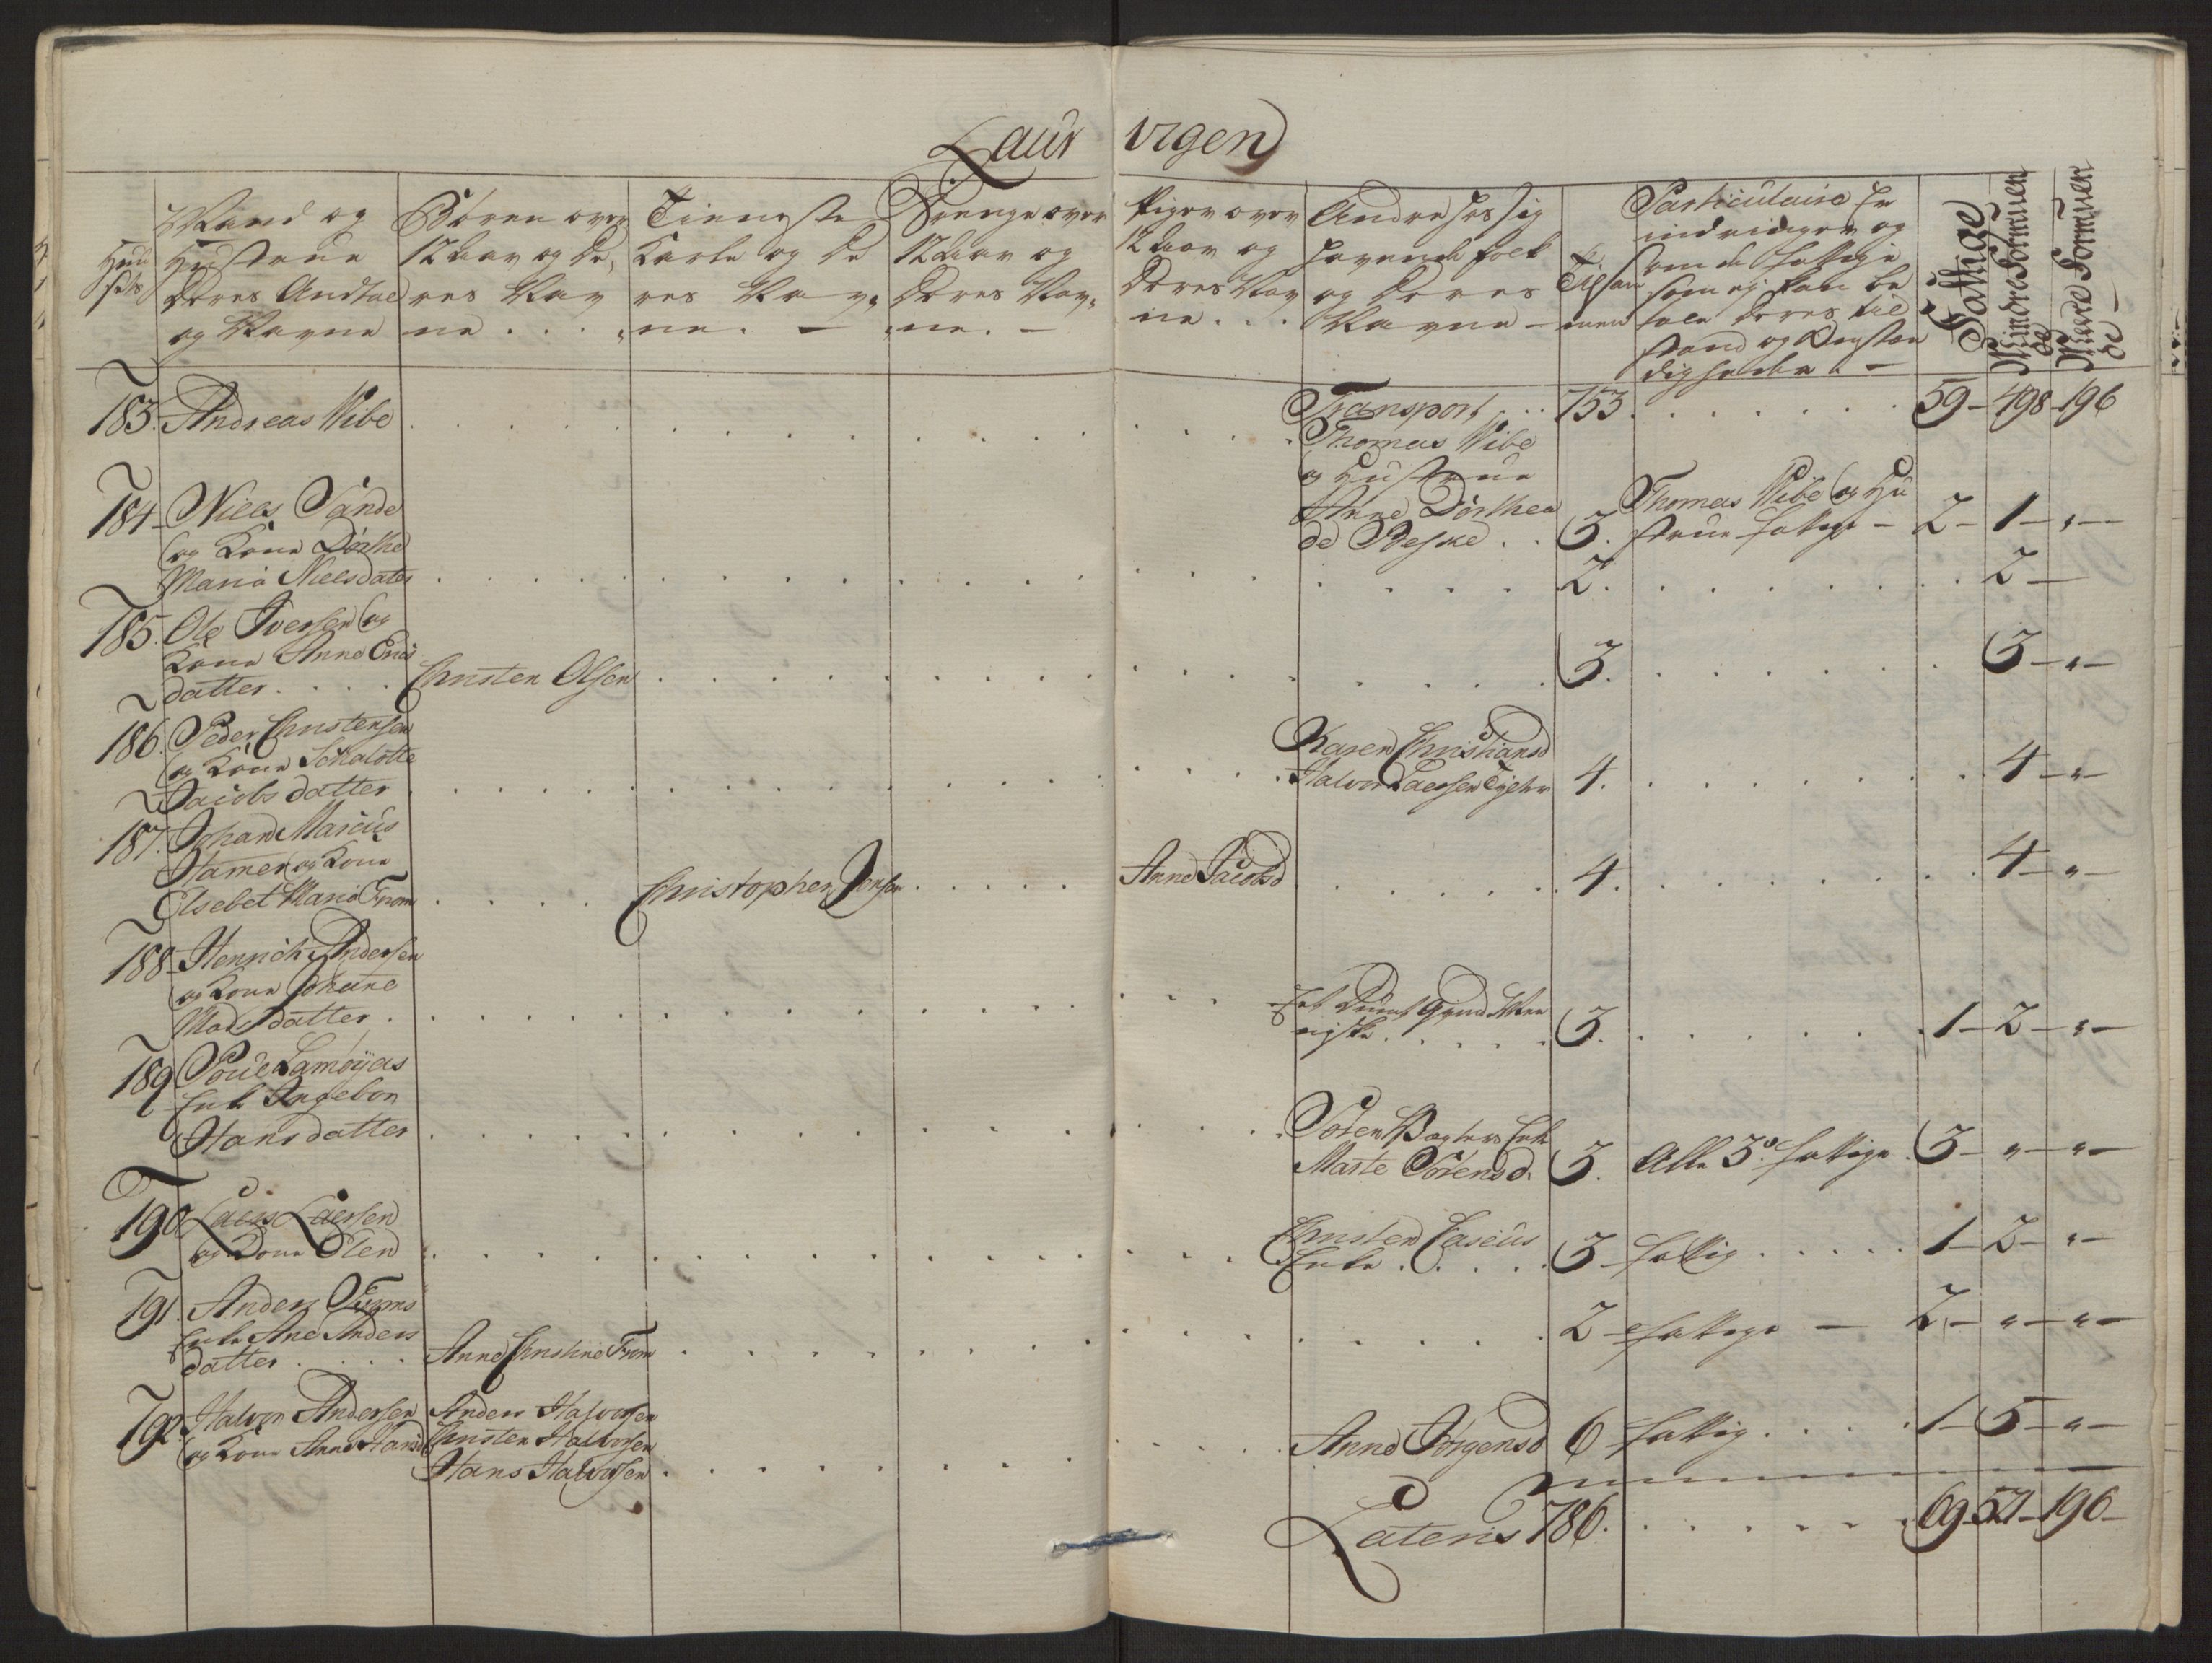 Laur vigen
Huu
sets
Mand og
Hustrue
deres Andtal
og Navne
Børen over
12 Aar og De,
res Nav
ne . . .
Tienneste
Karle og De
res Nav,
ne. —
Drenge over
12 Aar og
Deres Nav,
ne. —
Piger over
12 Aar og
Deres Nav
ne . . .
Andre hos sig
havende folk
og Deres
Navne —
Tilsam
men
Particulaire Er
indringer og
om de fattige
som ej kan be
tale deres til
stand og Omstæn
digheder. —
Fattige
Mindre Formuen
de
Meere Formuen
de —
Transport . . 753 . . . 59 — 498 — 196
183. Andreas Wibe
Thomas Wibe
og Hustrue
Anne Dorthea
de Beske . . 3.
Thomas Wibe og Hu
strue fattige — 2 — 1 — „ —
184 — Niels Sande
og Kone Dorthe
Maria Nielsdater . . . 2. . . . 2 —
185. Ole Iversen og
Kone Anne Erics
datter . . . . Christen Olsen . . . 3. . . . 3 — „ —
186. Peder Christensen
og Kone Schalotte
Jacobs datter . . .
Karen Christiansd
Halvor Laersen 4. . . . 4 — „ —
187. Johan Marcus
Hamer og Kone
Elsebet Maria From . . . Christopher Jensen . . . Anne Jacobsd . . . 4. . . . 4 — „ —
188 — Henrich Andersen
og Kone Johane
Mads datter . . . 3. . . . 1 — 2 — „ —
189 Poul Lamøyas
Enke Ingebor
Hans datter . . .
Søren Bagers Enke
Marte Sørensd. 3. Alle 3de fattige. 3 — „ — „ —
190 Laers Laersen
og Kone Elen . . .
Christen Caseus
Enke . . . 3 — fattig . . . 1 — 2 — „ —
191. Anders Froms
Enke Ane Anders
datter . . . Anne Christine From . . . 2 — fattige — 2 — „ — „ —
192. Halvor Andersen
og Kone Anne Hansd
Anders Halvorsen
Christen Halvorsen
Hans Halvorsen . . . Anne Jørgensd 6 — fattig . . . 1 — 5 — „ —
Lateris 786. . . . 69 — 521 — 196 —